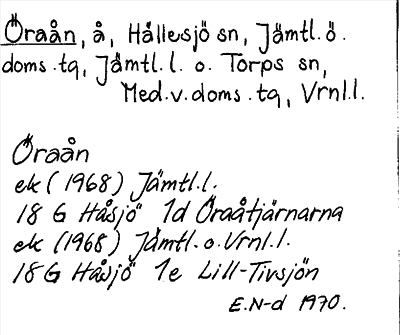 Öraån, å, Hällesjö sn, Jämtl. ö.
doms. tg, Jämtl. l. o. Torps sn,
Med. v. doms. tg, Vrnl. l.
Öraån
ek (1968) Jämtl. l.
18 G Håsjö 1d Öraåtjärnarna
ek (1968) Jämtl. o. Vrnl. l.
18 G Håsjö 1e Lill-Tivsjön
E. N-d 1970.